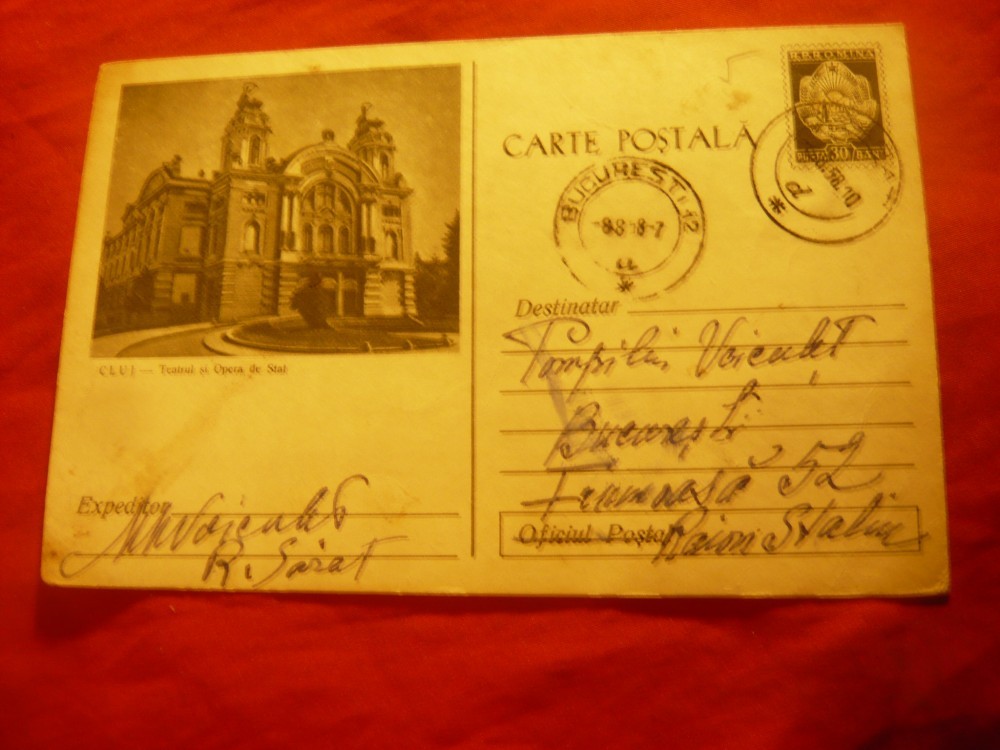 R.P.R. ROMINA
POSTA 30 BANI
CARTE POȘTALĂ
BUCUREȘTI 12
-8.8-8-7
u
*
d
*
CLUJ — Teatrul și Opera de Stat
Destinatar
Pompiliu Voiculeț
București
Frumoasă 52
Oficiul Poștal Raion Stalin
Expeditor
Voiculeț
R. Sărat